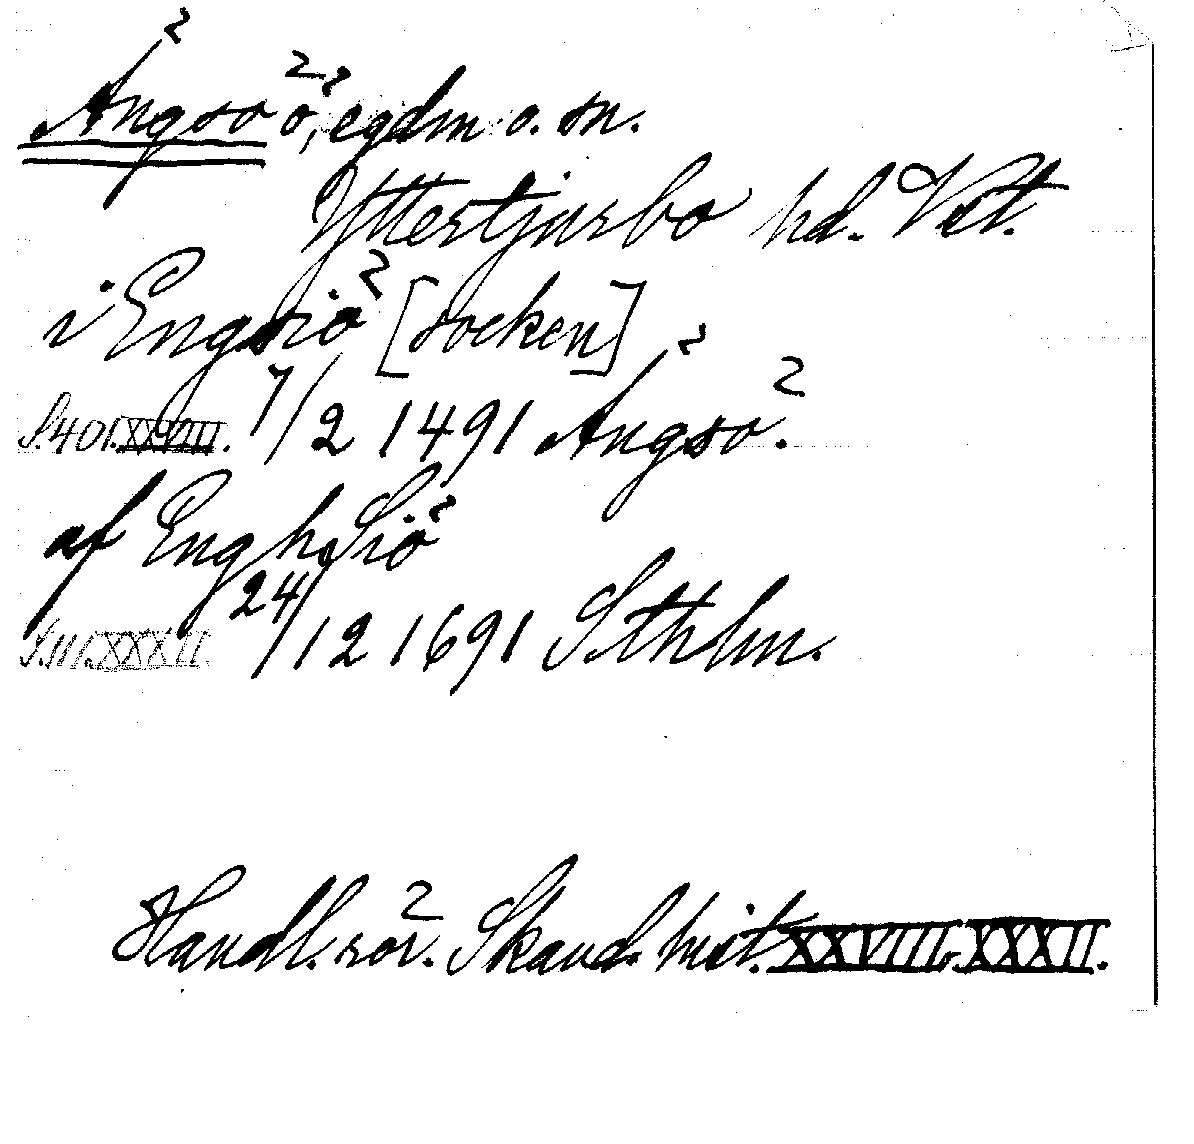 Ängsö ö, egdm o. sn.
Yttertjurbo hd. Vstt.
i Engsiö [socken]
S.401.XXVIII. 7/2 1491 Ängsö.
af EnghSiö
S.111.XXXII. 24/12 1691 Sthlm.
Handl. rör. Skand. hist. XXVIII. XXXII.